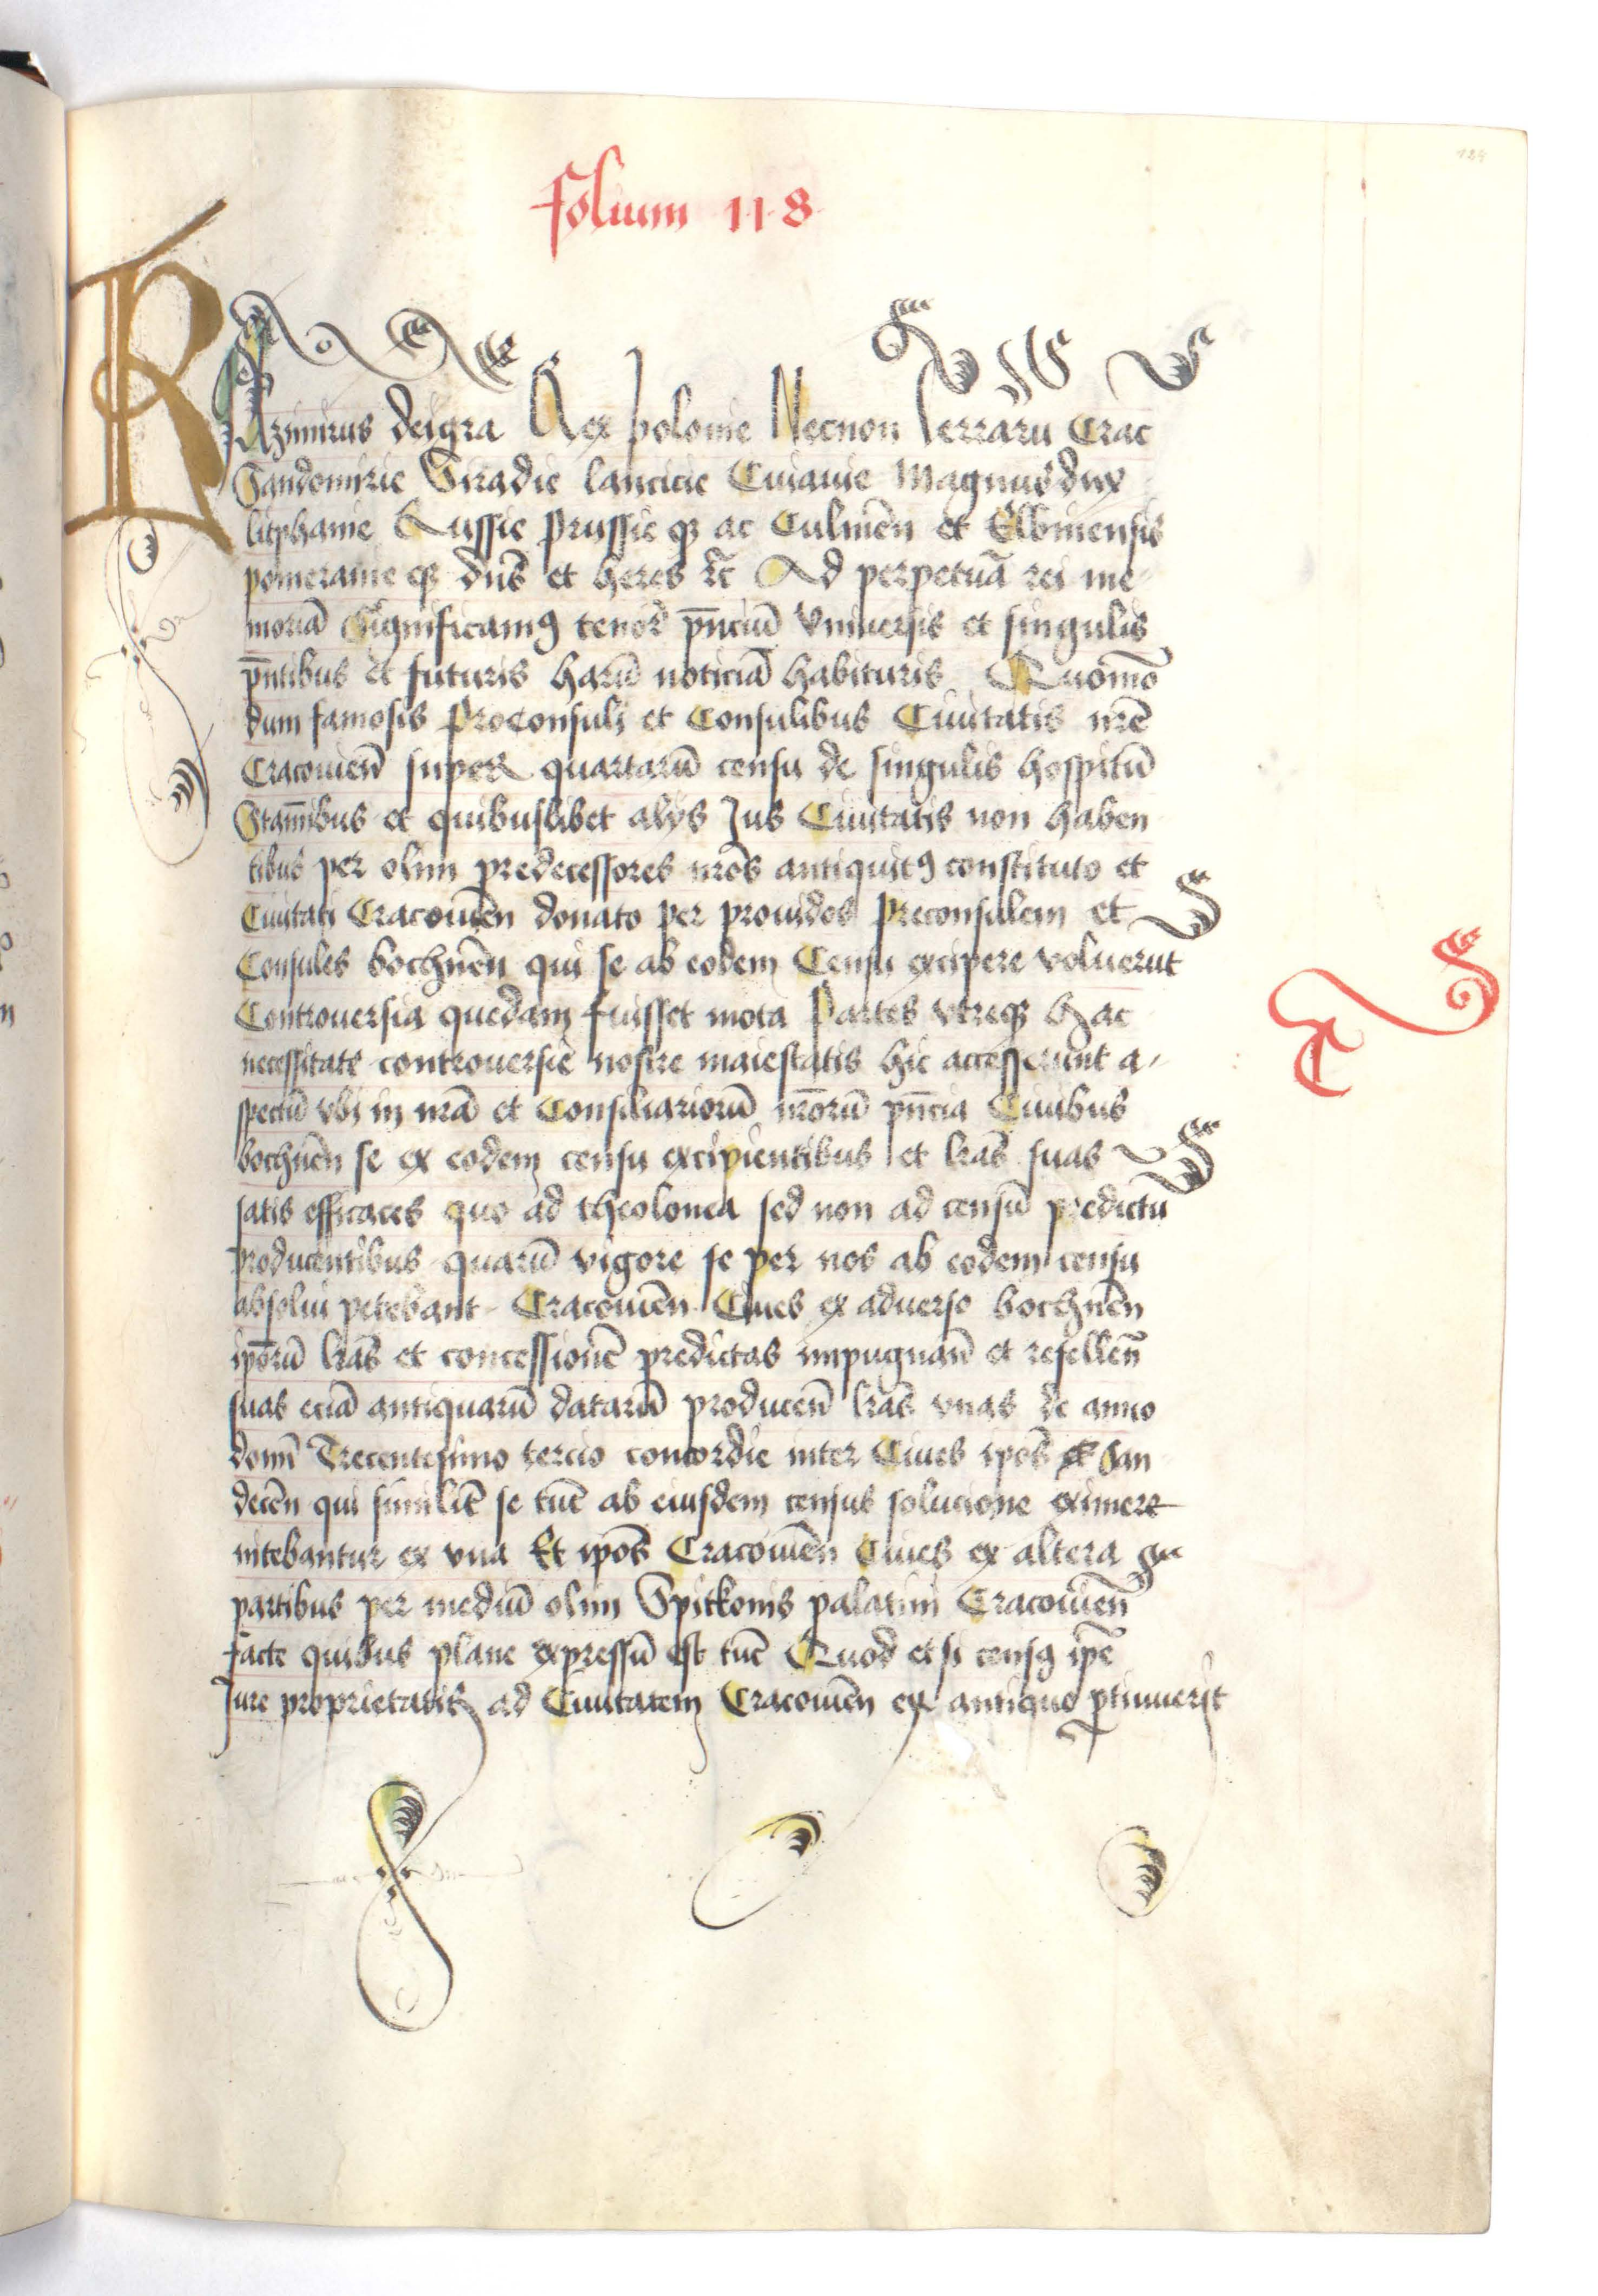 184
folium 118
KAzimirus deigra Rex polonie Necnon Terraru Crac
Sandomirie Siradie lancicie Cuiauie Magnus dux
litphanie Russie Prussie qȝ ac Culmen̄ et Elbinensis
pomeranie qȝ dn̄s et heres ꝛc̄ Ad perpetuā rei me
moriā Significamꝰ tenor̄ pn̄ciū Vniuersis et singulis
pn̄tibus et futuris harū noticiā habituris Quomō
dum famosis Proconsuli et Consulibus Ciuitatis nr̄e
Cracouien̄ super quartarū censu de singulis hospitū
Stam̄ibus et quibuslibet alys Jus Ciuitatis non haben
tibus per olim predecessores nr̄os antiquitꝰ constituto et
Ciuitati Cracouien̄ donato per prouidos Preconsulem et
Consules bochnen̄ qui se ab eodem Censu excipere voluerūt
Controuersia quedam fuisset mota Partes vtreqȝ hac
necessitate controuersie nostre maiestatis hic accesserunt a
spectū vbi in nr̄a et Consiliariorū nr̄orū pn̄cia Ciuibus
bochnen̄ se ex eodem censu excipientibus et lr̄as suas
satis efficaces quo ad theolonea sed non ad censū predictū
producentibus quarū vigore se per nos ab eodem censu
absolui petebant Cracouien̄ Ciues ex aduerso bochnen̄
ip̄orū lr̄as et concessionē predictas impugnan̄ et refellen̄
suas eciā antiquarū datarū producen̄ lr̄as vnas de anno
domī Trecentesimo tercio concordie inter Ciues ip̄os et San
decen̄ qui similit̄ se tūc ab eiusdem census solucione eximere
nitebantur ex vna Et ip̄os Cracouien̄ Ciues ex altera
partibus per mediū olim Spitkonis palatini Cracouien̄
facte quibus plane expressū est tūc Quod et si censꝰ ip̄e
Jure proprietatis ad Ciuitatem Cracouien̄ ex antiquo ꝑtinuerit